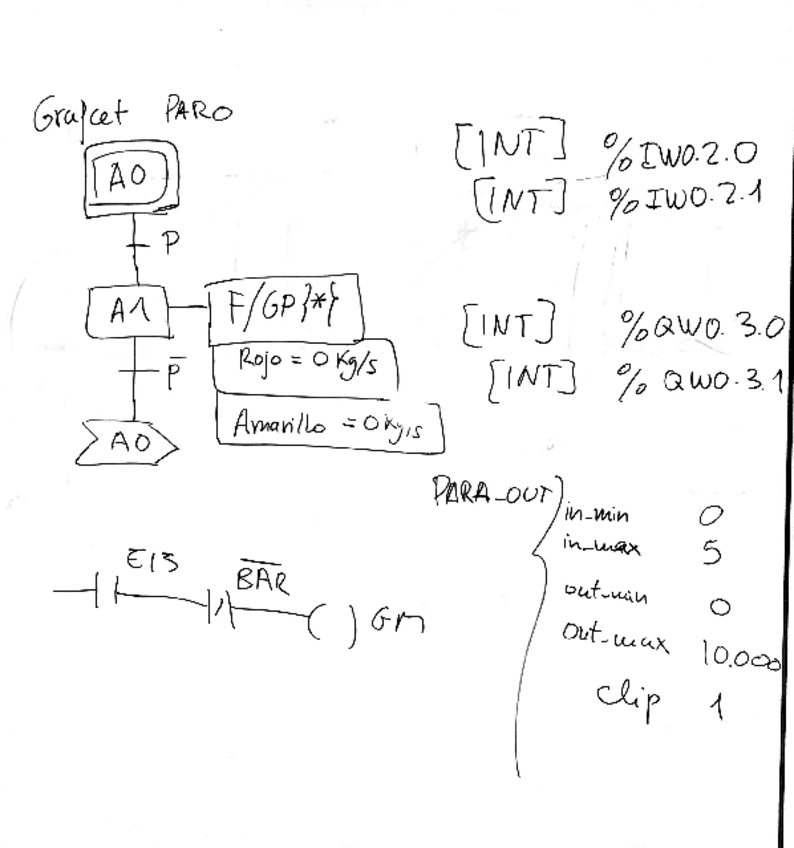 Grafcet PARO
A0
P
A1
F/GP}*{
Rojo = 0 Kg/s
Amarillo = 0 Kg/s
P̅
A0
[INT] %IW0.2.0
[INT] %IW0.2.1
[INT] %QW0.3.0
[INT] %QW0.3.1
PARA_OUT
in_min 0
in_max 5
out_min 0
out_max 10.000
clip 1
B̅A̅R̅
GM